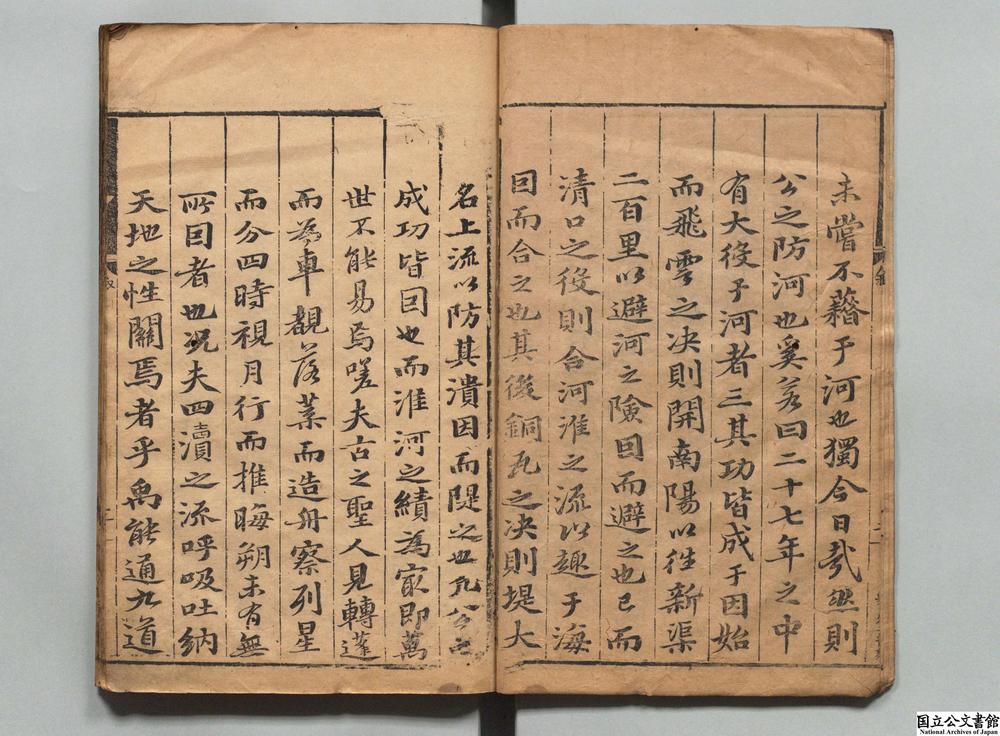 未嘗不藉于河也獨今日哉然則
公之防河也奚若曰二十七年之中
有大役于河者三其功皆成于因始
而飛雲之决則開南陽以徃新渠
二百里以避河之險因而避之也已而
清口之役則合河淮之流以趣于海
因而合之也其後銅瓦之决則堤大
名上流以防其潰因而隄之也凡公之
成功皆因也而淮河之績為㝡即萬
世不能易焉嗟夫古之聖人見轉蓬
而為車觀落葉而造舟察列星
而分四時視月行而推晦朔未有無
所因者也况夫四瀆之流呼吸吐納
天地之性關焉者乎禹能通九道
国立公文書館
National Archives of Japan